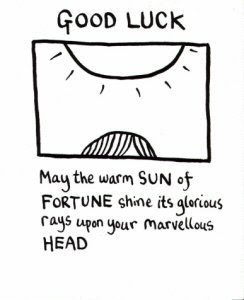 GOOD LUCK
May the warm SUN of
FORTUNE shine its glorious
rays upon your marvellous
HEAD